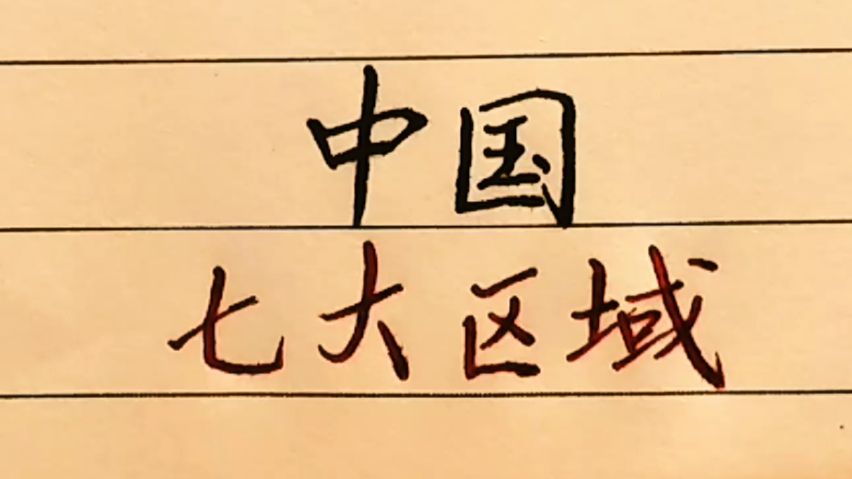 中国
七大区域